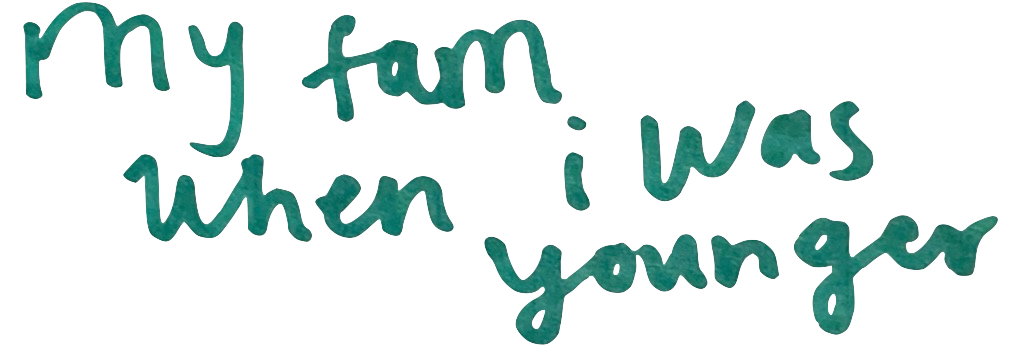 my fam
when i was
younger